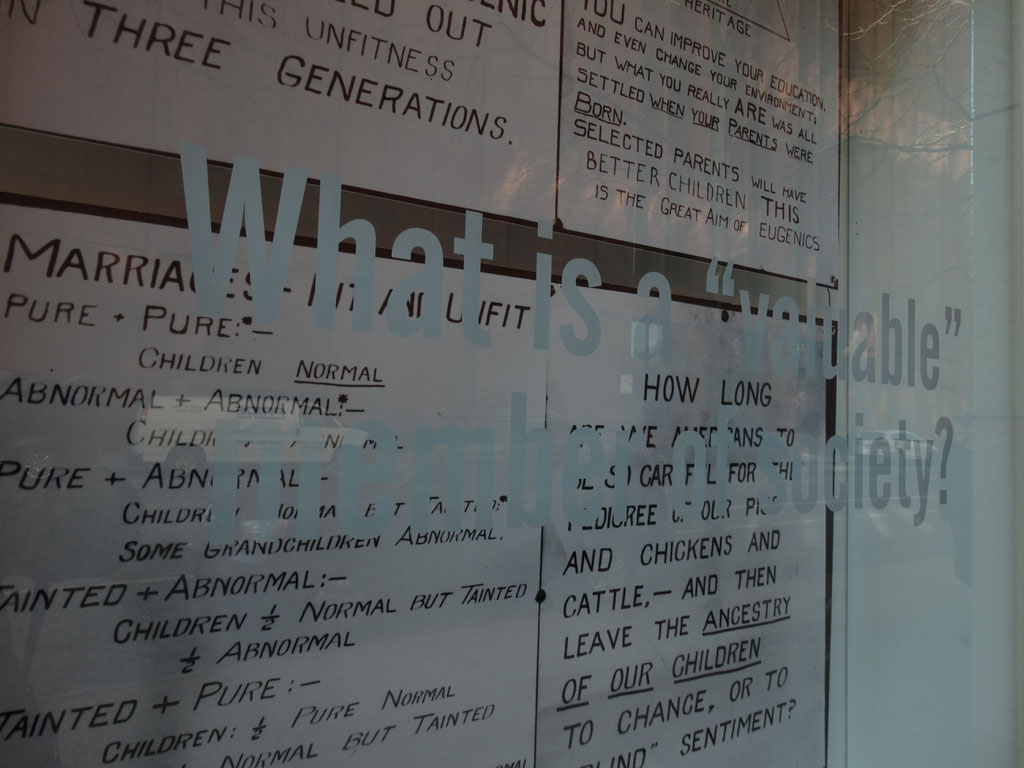 OUT
THIS UNFITNESS
THREE GENERATIONS.
HERITAGE
YOU CAN IMPROVE YOUR EDUCATION,
AND EVEN CHANGE YOUR ENVIRONMENT;
BUT WHAT YOU REALLY ARE WAS ALL
SETTLED WHEN YOUR PARENTS WERE
BORN.
SELECTED PARENTS WILL HAVE
BETTER CHILDREN THIS
IS THE GREAT AIM OF EUGENICS
What is a "valuable"
member of society?
MARRIAGES - FIT AND UNFIT
PURE + PURE:*—
CHILDREN NORMAL
ABNORMAL + ABNORMAL:*—
CHILDREN ABNORMAL
PURE + ABNORMAL:-
CHILDREN NORMAL BUT TAINTED:*
SOME GRANDCHILDREN ABNORMAL.
TAINTED + ABNORMAL:—
CHILDREN ½ NORMAL BUT TAINTED
½ ABNORMAL
TAINTED + PURE:—
CHILDREN: ½ PURE NORMAL
NORMAL BUT TAINTED
HOW LONG
ARE WE AMERICANS TO
BE SO CAREFUL FOR THE
PEDIGREE OF OUR PIGS
AND CHICKENS AND
CATTLE,— AND THEN
LEAVE THE ANCESTRY
OF OUR CHILDREN
TO CHANCE, OR TO
"BLIND" SENTIMENT?